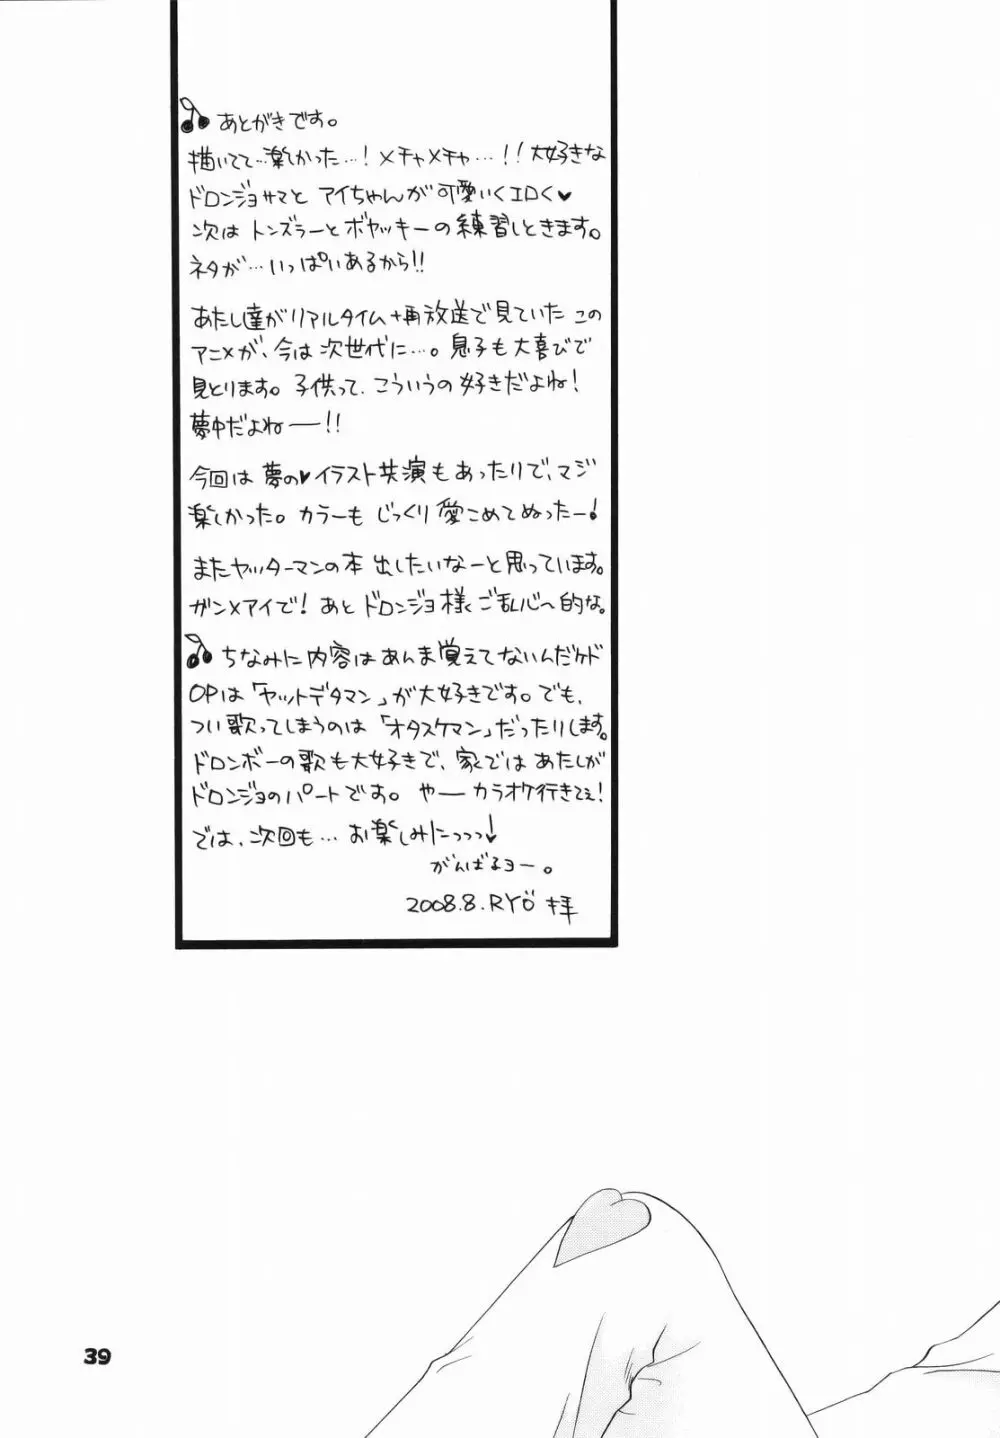 あとがきです。
描いてて…楽しかった…!メチャメチャ…!!大好きな
ドロンジョサマと アイちゃんが可愛いくエロく♥
次はトンズラーとボヤッキーの練習しときます。
ネタが…いっぱいあるから!!
あたし達がリアルタイム+再放送で見ていた この
アニメが、今は次世代に…。息子も大喜びで
見とります。子供って、こういうの好きだよね!
夢中だよねー!!
今回は夢の♥イラスト共演もあったりで、マジ
楽しかった。カラーも じっくり愛こめてぬったー!
またヤッターマンの本 出したいなーと思っています。
ガン×アイで!あと ドロンジョ様ご乱心〜的な。
ちなみに内容はあんま覚えてないんだケド
OPは「ヤットデタマン」が大好きです。でも、
つい歌ってしまうのは「オタスケマン」だったりします。
ドロンボーの歌も大好きで、家ではあたしが
ドロンジョのパートです。やーカラオケ行きてぇ!
では、次回も…お楽しみにっっっ↓
がんばるヨー。
2008.8.RYÖ 拝
39